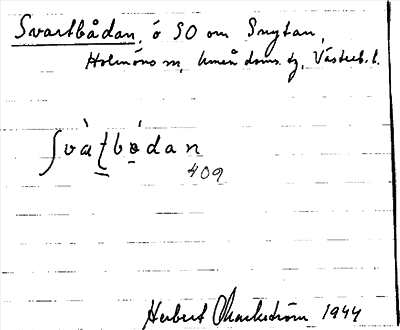 Svartbådan, ö SO om Snytan,
Holmöns sn, Umeå doms. tg, Västerb. l.
Svàt̲bó̲dan
409
Herbert Markström 1944